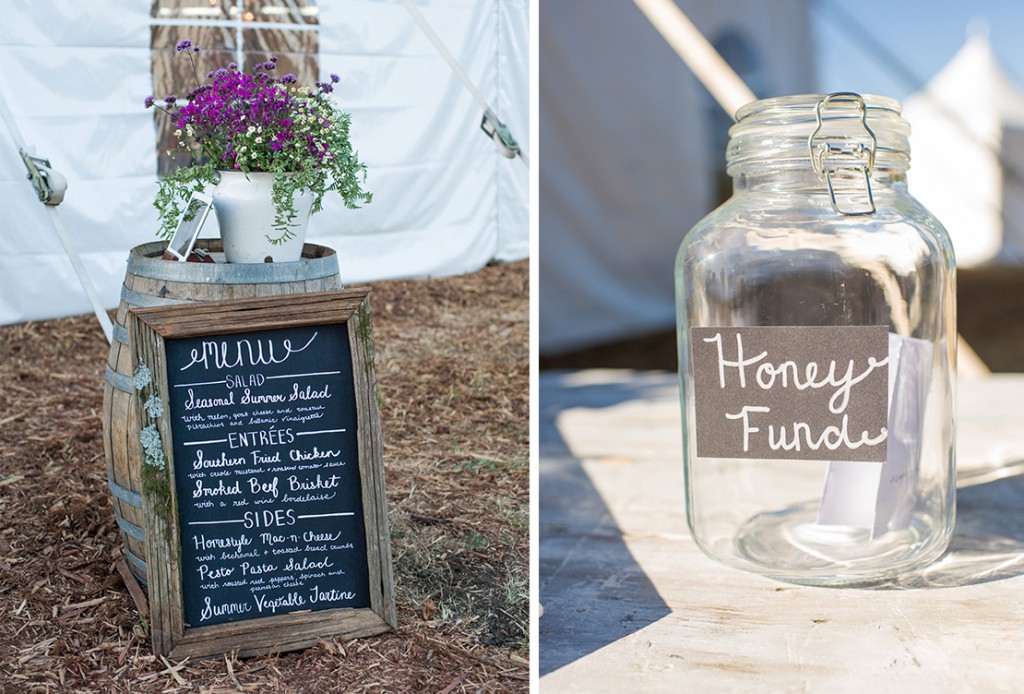 MENU
SALAD
Seasonal Summer Salad
with melon, goat cheese and roasted
pistachios and balsamic vinaigrette
ENTRÉES
Southern Fried Chicken
with creole mustard + roasted tomato sauce
Smoked Beef Brisket
with a red wine bordelaise
SIDES
Homestyle Mac-n-Cheese
with bechamel + toasted bread crumbs
Pesto Pasta Salad
with roasted red peppers, spinach and
parmesan cheese
Summer Vegetable Tartine
Honey
Fund